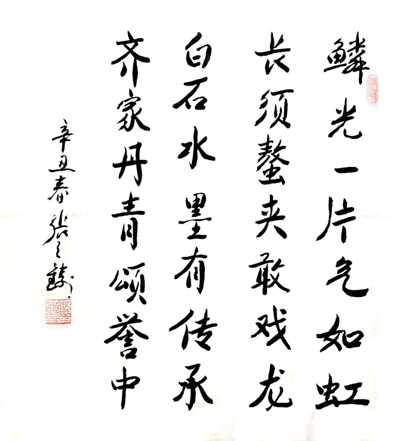 鳞光一片气如虹
长须螯夹敢戏龙
白石水墨有传承
齐家丹青颂誉中
辛丑春张之